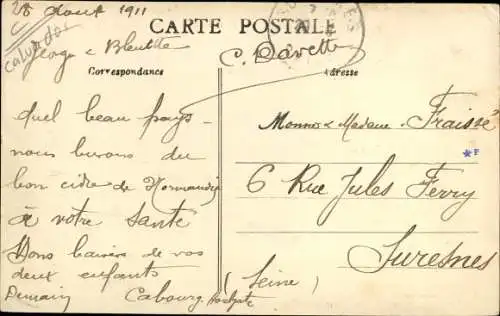 28 Aout 1911
Calvados
CARTE POSTALE
Correspondance
Adresse
Quel beau pays -
nous buvons du
bon cidre de Normandie
à votre santé
Bons baisers de vos
deux enfants
Demain Cabourg
Madame Fraissé
6 Rue Jules Ferry
Suresnes
(Seine)